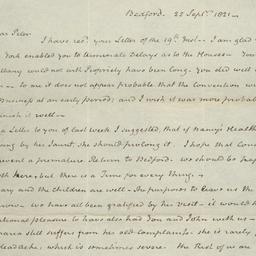 Bedford. 22 Sepr. 1821 -
Dear Peter
I have recd. your Letter of the 19th. Inst - I am glad
York enabled you to terminate Delays as to the Houses - You
Albany could not with Propriety have been long. You did well
to me it does not appear probable that the Convention will
at an early period; and I wish it was more probable
finish it well -
a Letter to you of last week I suggested, that if Nancy's Health
by her Jaunt, she should prolong it. I hope that
prevent a premature Return to Bedford. We should be happy
both here, but there is a Time for every thing. -
and the children are well - He purposes to leave us the
- We have all been gratified by her Visit - it would
additional pleasure to have also had You and John with us -
Maria still suffers from her old complaints. She is rarely
Headache, which is sometimes severe. The Rest of us are